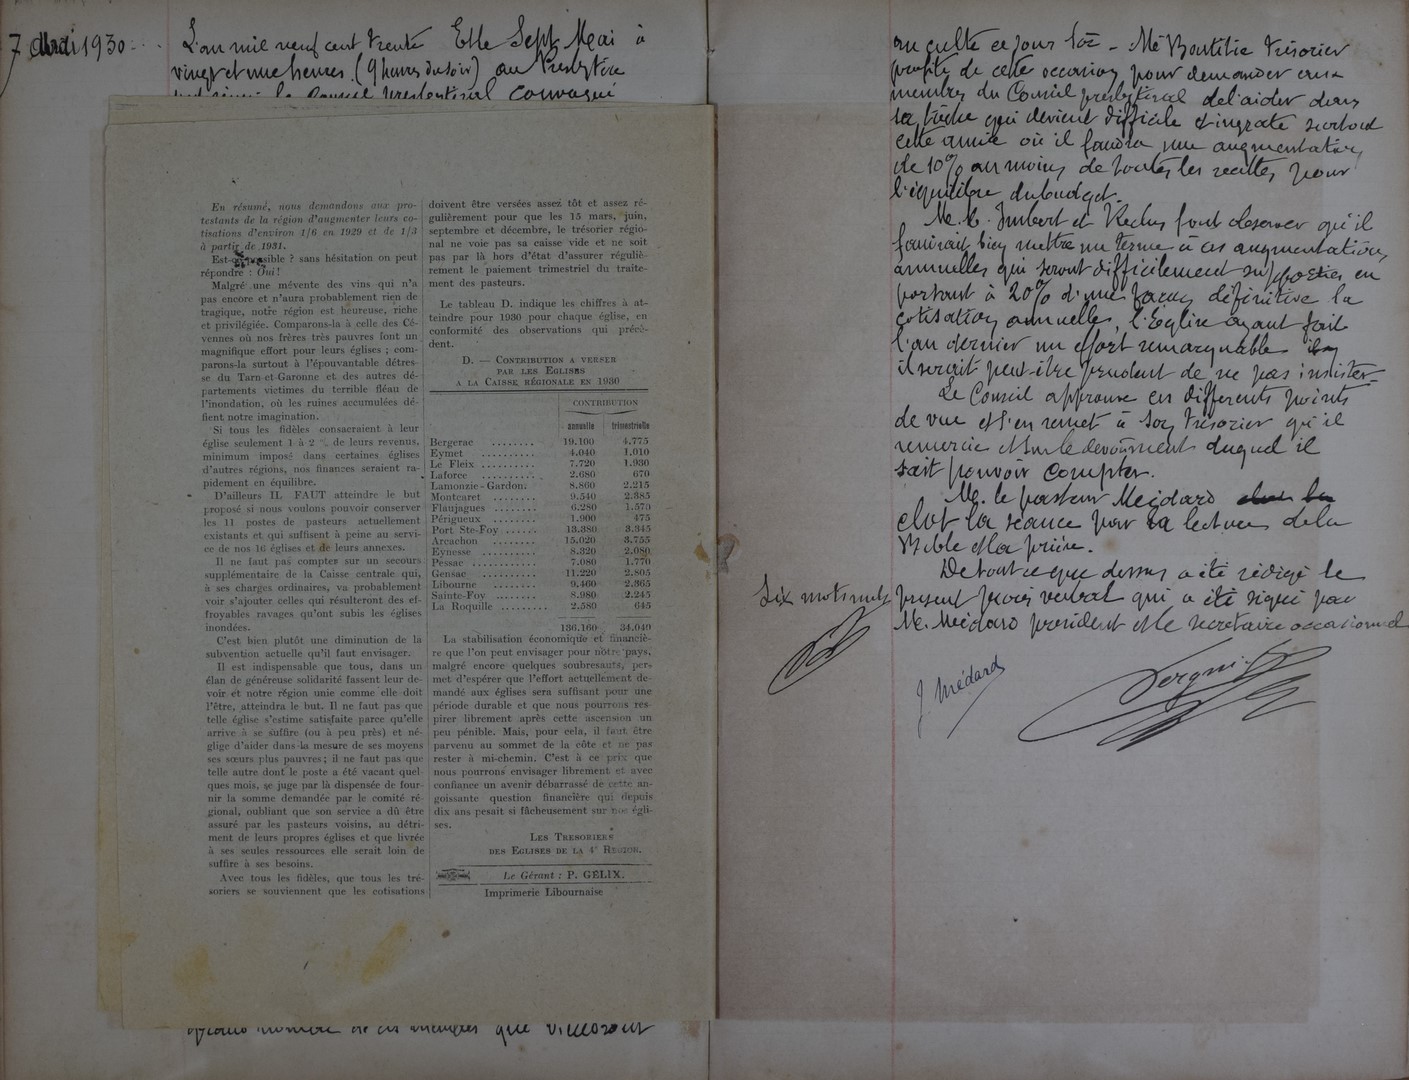 7 Mai 1930
L'an mil neuf cent trente Et le Sept Mai à
vingt et une heures (9 heures du soir) au Presbytère
le Conseil presbytéral convoqué
En résumé, nous demandons aux pro-
testants de la région d'augmenter leurs co-
tisations d'environ 1/6 en 1929 et de 1/3
à partir de 1931.
Est-ce possible ? sans hésitation on peut
répondre : Oui !
Malgré une mévente des vins qui n'a
pas encore et n'aura probablement rien de
tragique, notre région est heureuse, riche
et privilégiée. Comparons-la à celle des Cé-
vennes où nos frères très pauvres font un
magnifique effort pour leurs églises ; com-
parons-la surtout à l'épouvantable détres-
se du Tarn-et-Garonne et des autres dé-
partements victimes du terrible fléau de
l'inondation, où les ruines accumulées dé-
fient notre imagination.
Si tous les fidèles consacraient à leur
église seulement 1 à 2 % de leurs revenus,
minimum imposé dans certaines églises
d'autres régions, nos finances seraient ra-
pidement en équilibre.
D'ailleurs IL FAUT atteindre le but
proposé si nous voulons pouvoir conserver
les 11 postes de pasteurs actuellement
existants et qui suffisent à peine au servi-
ce de nos 16 églises et de leurs annexes.
Il ne faut pas compter sur un secours
supplémentaire de la Caisse centrale qui,
à ses charges ordinaires, va probablement
voir s'ajouter celles qui résulteront des ef-
froyables ravages qu'ont subis les églises
inondées.
C'est bien plutôt une diminution de la
subvention actuelle qu'il faut envisager.
Il est indispensable que tous, dans un
élan de généreuse solidarité fassent leur de-
voir et notre région unie comme elle doit
l'être, atteindra le but. Il ne faut pas que
telle église s'estime satisfaite parce qu'elle
arrive à se suffire (ou à peu près) et né-
glige d'aider dans la mesure de ses moyens
ses sœurs plus pauvres ; il ne faut pas que
telle autre dont le poste a été vacant quel-
ques mois, se juge par là dispensée de four-
nir la somme demandée par le comité ré-
gional, oubliant que son service a dû être
assuré par les pasteurs voisins, au détri-
ment de leurs propres églises et que livrée
à ses seules ressources elle serait loin de
suffire à ses besoins.
Avec tous les fidèles, que tous les tré-
soriers se souviennent que les cotisations
doivent être versées assez tôt et assez ré-
gulièrement pour que les 15 mars, juin,
septembre et décembre, le trésorier régio-
nal ne voie pas sa caisse vide et ne soit
pas par là hors d'état d'assurer réguliè-
rement le paiement trimestriel du traite-
ment des pasteurs.
Le tableau D. indique les chiffres à at-
teindre pour 1930 pour chaque église, en
conformité des observations qui précè-
dent.
D. — CONTRIBUTION A VERSER
PAR LES EGLISES
A LA CAISSE RÉGIONALE EN 1930
CONTRIBUTION
annuelle trimestrielle
Bergerac ........ 19.100 4.775
Eymet ......... 4.040 1.010
Le Fleix ......... 7.720 1.930
Laforce ......... 2.680 670
Lamonzie-Gardon. 8.860 2.215
Montcaret ........ 9.540 2.385
Flaujagues ........ 6.280 1.570
Périgueux ........ 1.900 475
Port Ste-Foy ...... 13.380 3.345
Arcachon ........ 15.020 3.755
Eynesse ......... 8.320 2.080
Pessac .......... 7.080 1.770
Gensac .......... 11.220 2.805
Libourne ........ 9.460 2.365
Sainte-Foy ....... 8.980 2.245
La Roquille ........ 2.580 645
136.160 34.040
La stabilisation économique et financiè-
re que l'on peut envisager pour notre pays,
malgré encore quelques soubresauts, per-
met d'espérer que l'effort actuellement de-
mandé aux églises sera suffisant pour une
période durable et que nous pourrons res-
pirer librement après cette ascension un
peu pénible. Mais, pour cela, il faut être
parvenu au sommet de la côte et ne pas
rester à mi-chemin. C'est à ce prix que
nous pourrons envisager librement et avec
confiance un avenir débarrassé de cette an-
goissante question financière qui depuis
dix ans pesait si fâcheusement sur nos égli-
ses.
LES TRESORIERS
DES EGLISES DE LA 4e REGION.
Le Gérant : P. GÉLIX.
Imprimerie Libournaise
nombre de ces membres que
au culte ce jour là - Mr Boutitie trésorier
profite de cette occasion pour demander aux
membres du Conseil presbytéral de l'aider dans
sa tâche qui devient difficile et ingrate surtout
cette année où il faudra une augmentation
de 10% au moins de toutes les recettes pour
l'équilibre du budget.
M.M. Imbert et Reclus font observer qu'il
faudrait bien mettre un terme à ces augmentations
annuelles qui seront difficilement supportées en
portant à 20% d'une façon définitive la
cotisation annuelle, l'Eglise ayant fait
l'an dernier un effort remarquable
il serait peut-être prudent de ne pas insister -
Le Conseil approuve ces différents points
de vue et s'en remet à son trésorier qu'il
remercie et sur le dévoûment duquel il
sait pouvoir compter.
Mr. le pasteur Médard
clot la séance par la lecture de la
Bible et la prière.
De tout ce que dessus a été rédigé le
Six mots nuls
présent procès verbal qui a été signé par
Mr. Médard président et le secrétaire occasionnel
J. Médard